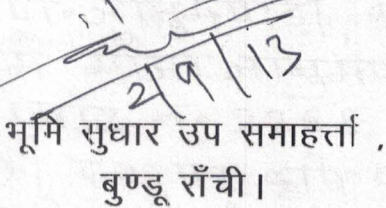 2/9/13
भूमि सुधार उप समाहर्त्ता ,
बुण्डू राँची।